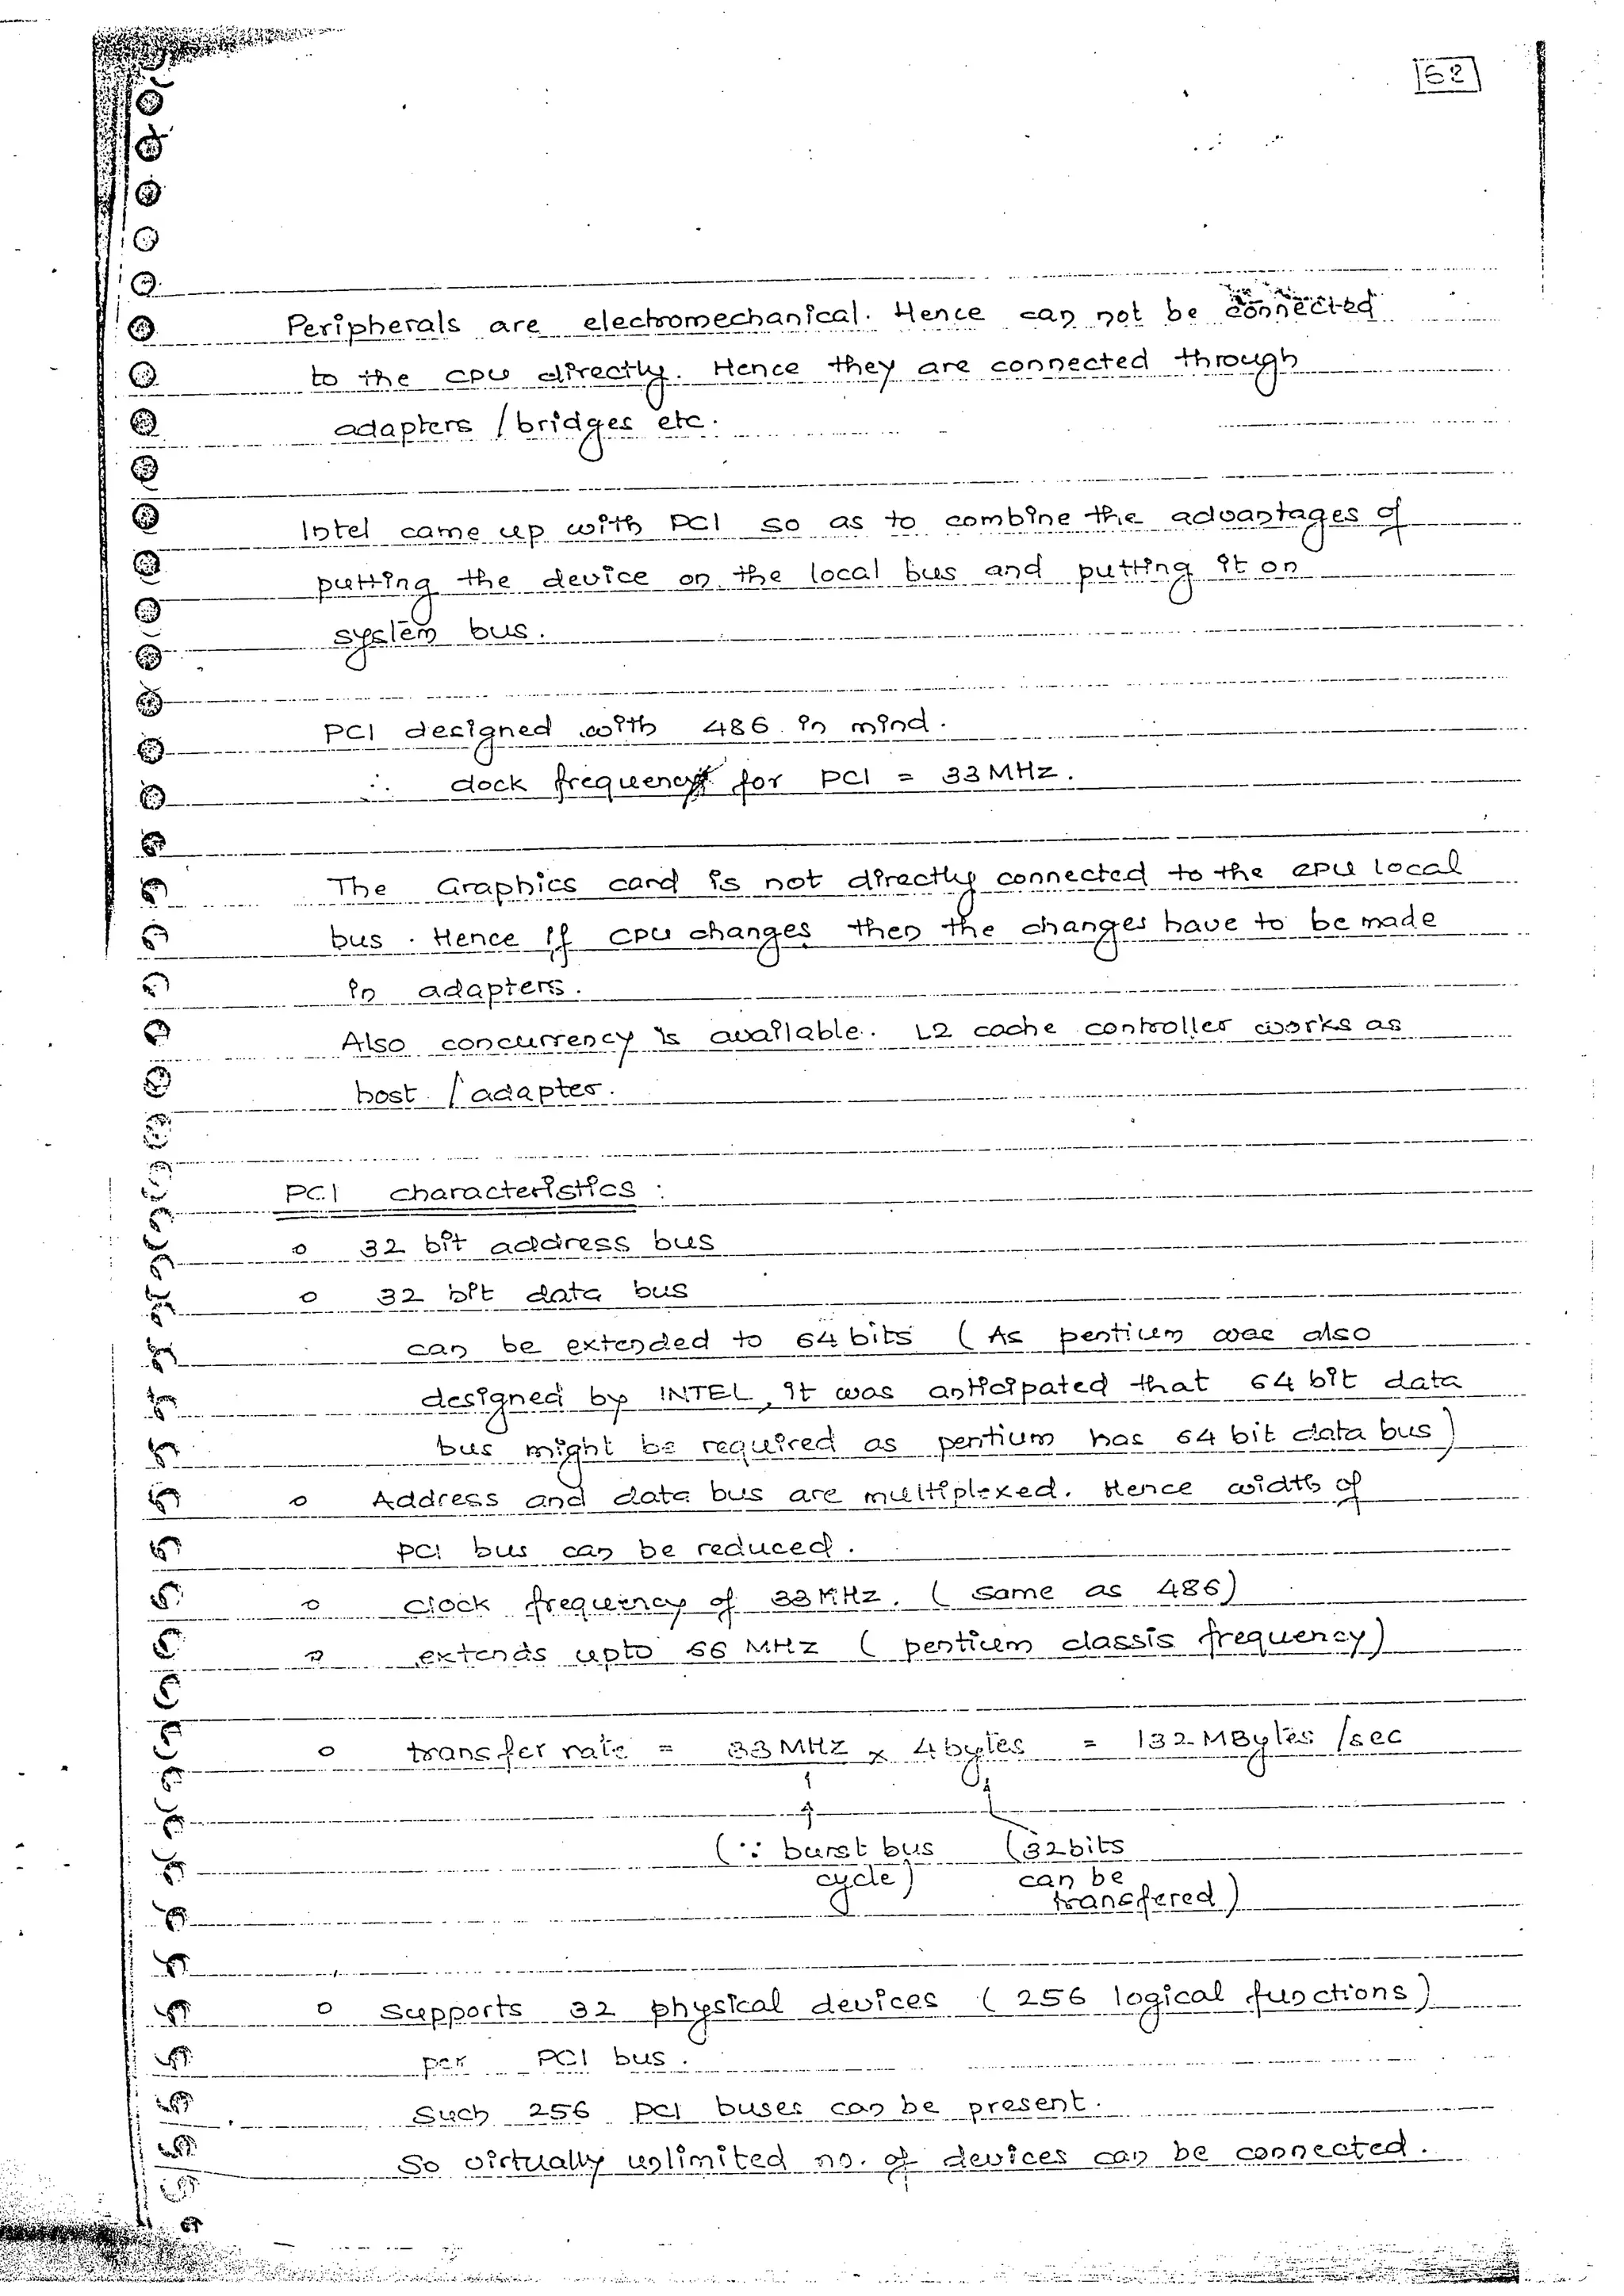 162
Peripherals are electromechanical. Hence can not be connected
to the CPU directly. Hence they are connected through
adapters / bridges etc.
Intel came up with PCI so as to combine the advantages of
putting the device on the local bus and putting it on
system bus.
PCI designed with 486 in mind.
∴ clock frequency for PCI = 33 MHz.
The Graphics card is not directly connected to the CPU local
bus. Hence if CPU changes then the changes have to be made
in adapters.
Also concurrency is available. L2 cache controller works as
host / adapter.
PCI characteristics :
o 32 bit address bus
o 32 bit data bus
can be extended to 64 bits (As pentium was also
designed by INTEL, it was anticipated that 64 bit data
bus might be required as pentium has 64 bit data bus)
o Address and data bus are multiplexed. Hence width of
PCI bus can be reduced.
o clock frequency of 33 MHz. (same as 486)
o extends upto 66 MHz (pentium classis frequency)
o transfer rate = 33 MHz x 4 bytes = 132 MBytes /sec
(∵ burst bus (32 bits
cycle) can be
transfered)
o supports 32 physical devices (256 logical functions)
per PCI bus.
Such 256 PCI buses can be present.
So virtually unlimited no. of devices can be connected.